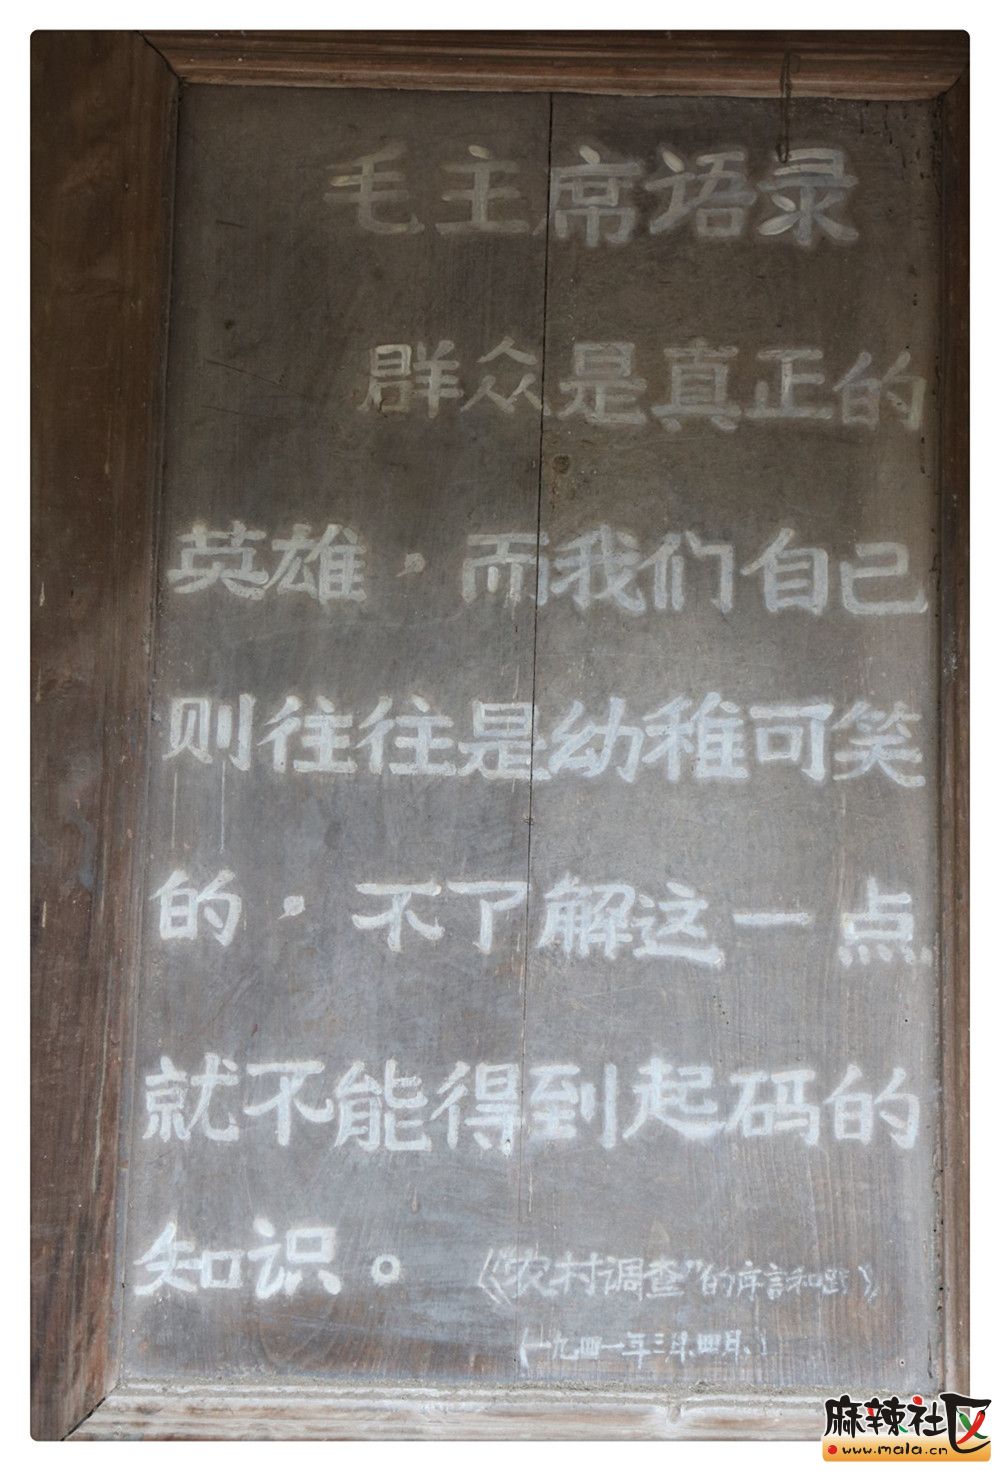 毛主席语录
群众是真正的
英雄，而我们自己
则往往是幼稚可笑
的，不了解这一点
就不能得到起码的
知识。
《“农村调查”的序言和跋》
(一九四一年三月、四月、)
麻辣社区
www.mala.cn